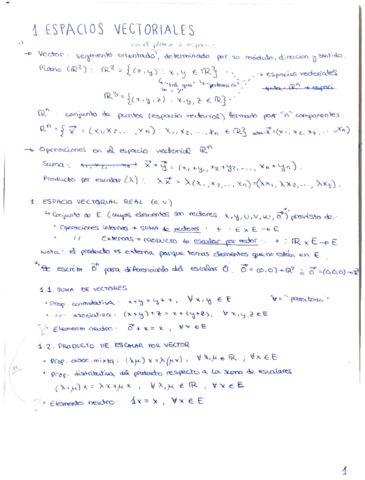 1 ESPACIOS VECTORIALES
en el plano o espacio
→ Vector: segmento orientado, determinado por su módulo, dirección y sentido.
Plano (ℝ²): ℝ² = {(x,y) : x,y ∈ ℝ}
"tal que" "pertenece"
→ espacios vectoriales
ℝ³ = {(x,y,z) : x,y,z ∈ ℝ}
ℝⁿ conjunto de puntos (espacio vectorial) formado por "n" componentes
ℝⁿ = { x⃗ = (x₁, x₂, ..., xₙ) : x₁, x₂, ..., xₙ ∈ ℝ}
→ Operaciones en el espacio vectorial ℝⁿ
Suma: x⃗ + y⃗ = (x₁+y₁, x₂+y₂, ..., xₙ+yₙ).
Producto por escalar (λ): λx⃗ = λ(x₁, x₂, ..., xₙ) = (λx₁, λx₂, .., λxₙ).
1. ESPACIO VECTORIAL REAL (e.v)
Conjunto de E (cuyos elementos son vectores x, y, u, v, w, 0⃗*) provisto de:
· Operaciones internas → SUMA de vectores : + : E × E → E
· " externas → PRODUCTO de escalar por vector : · : ℝ × E → E
Nota: el producto es externa porque tomas elementos que no están en E.
*Se escribe 0⃗ para diferenciarlo del escalar 0. 0⃗ = (0,0) → ℝ² ; 0⃗ = (0,0,0) → ℝ³
1.1. SUMA DE VECTORES
· Prop. conmutativa: x+y = y+x, ∀ x,y ∈ E
∀ = "para todo"
· " asociativa: (x+y)+z = x+(y+z), ∀ x,y,z ∈ E
· Elemento neutro: 0⃗ + x = x, ∀ x ∈ E
1.2. PRODUCTO DE ESCALAR POR VECTOR
· Prop. asoc. mixta: (λμ)x = λ(μx), ∀ λ,μ ∈ ℝ, ∀ x ∈ E
· Prop. distributiva del producto respecto a la suma de escalares:
(λ+μ)x = λx + μx, ∀ λ,μ ∈ ℝ, ∀ x ∈ E
· Elemento neutro: 1x = x, ∀ x ∈ E
1